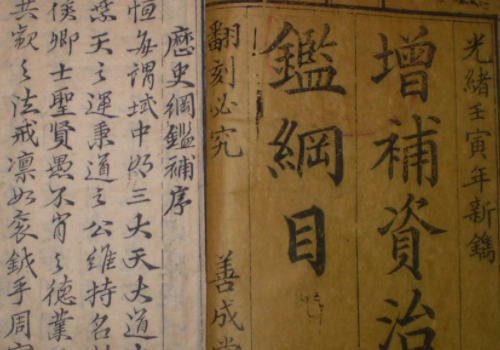 光緒壬寅年新鐫
增補資治
鑑綱目
翻刻必究
善成堂
歷史綱鑑補序
恒每謂域中的三大天大道
天之運秉道之公維持名
侯卿士聖賢愚不肖之德業
共歎之法戒凛如衮鉞乎周